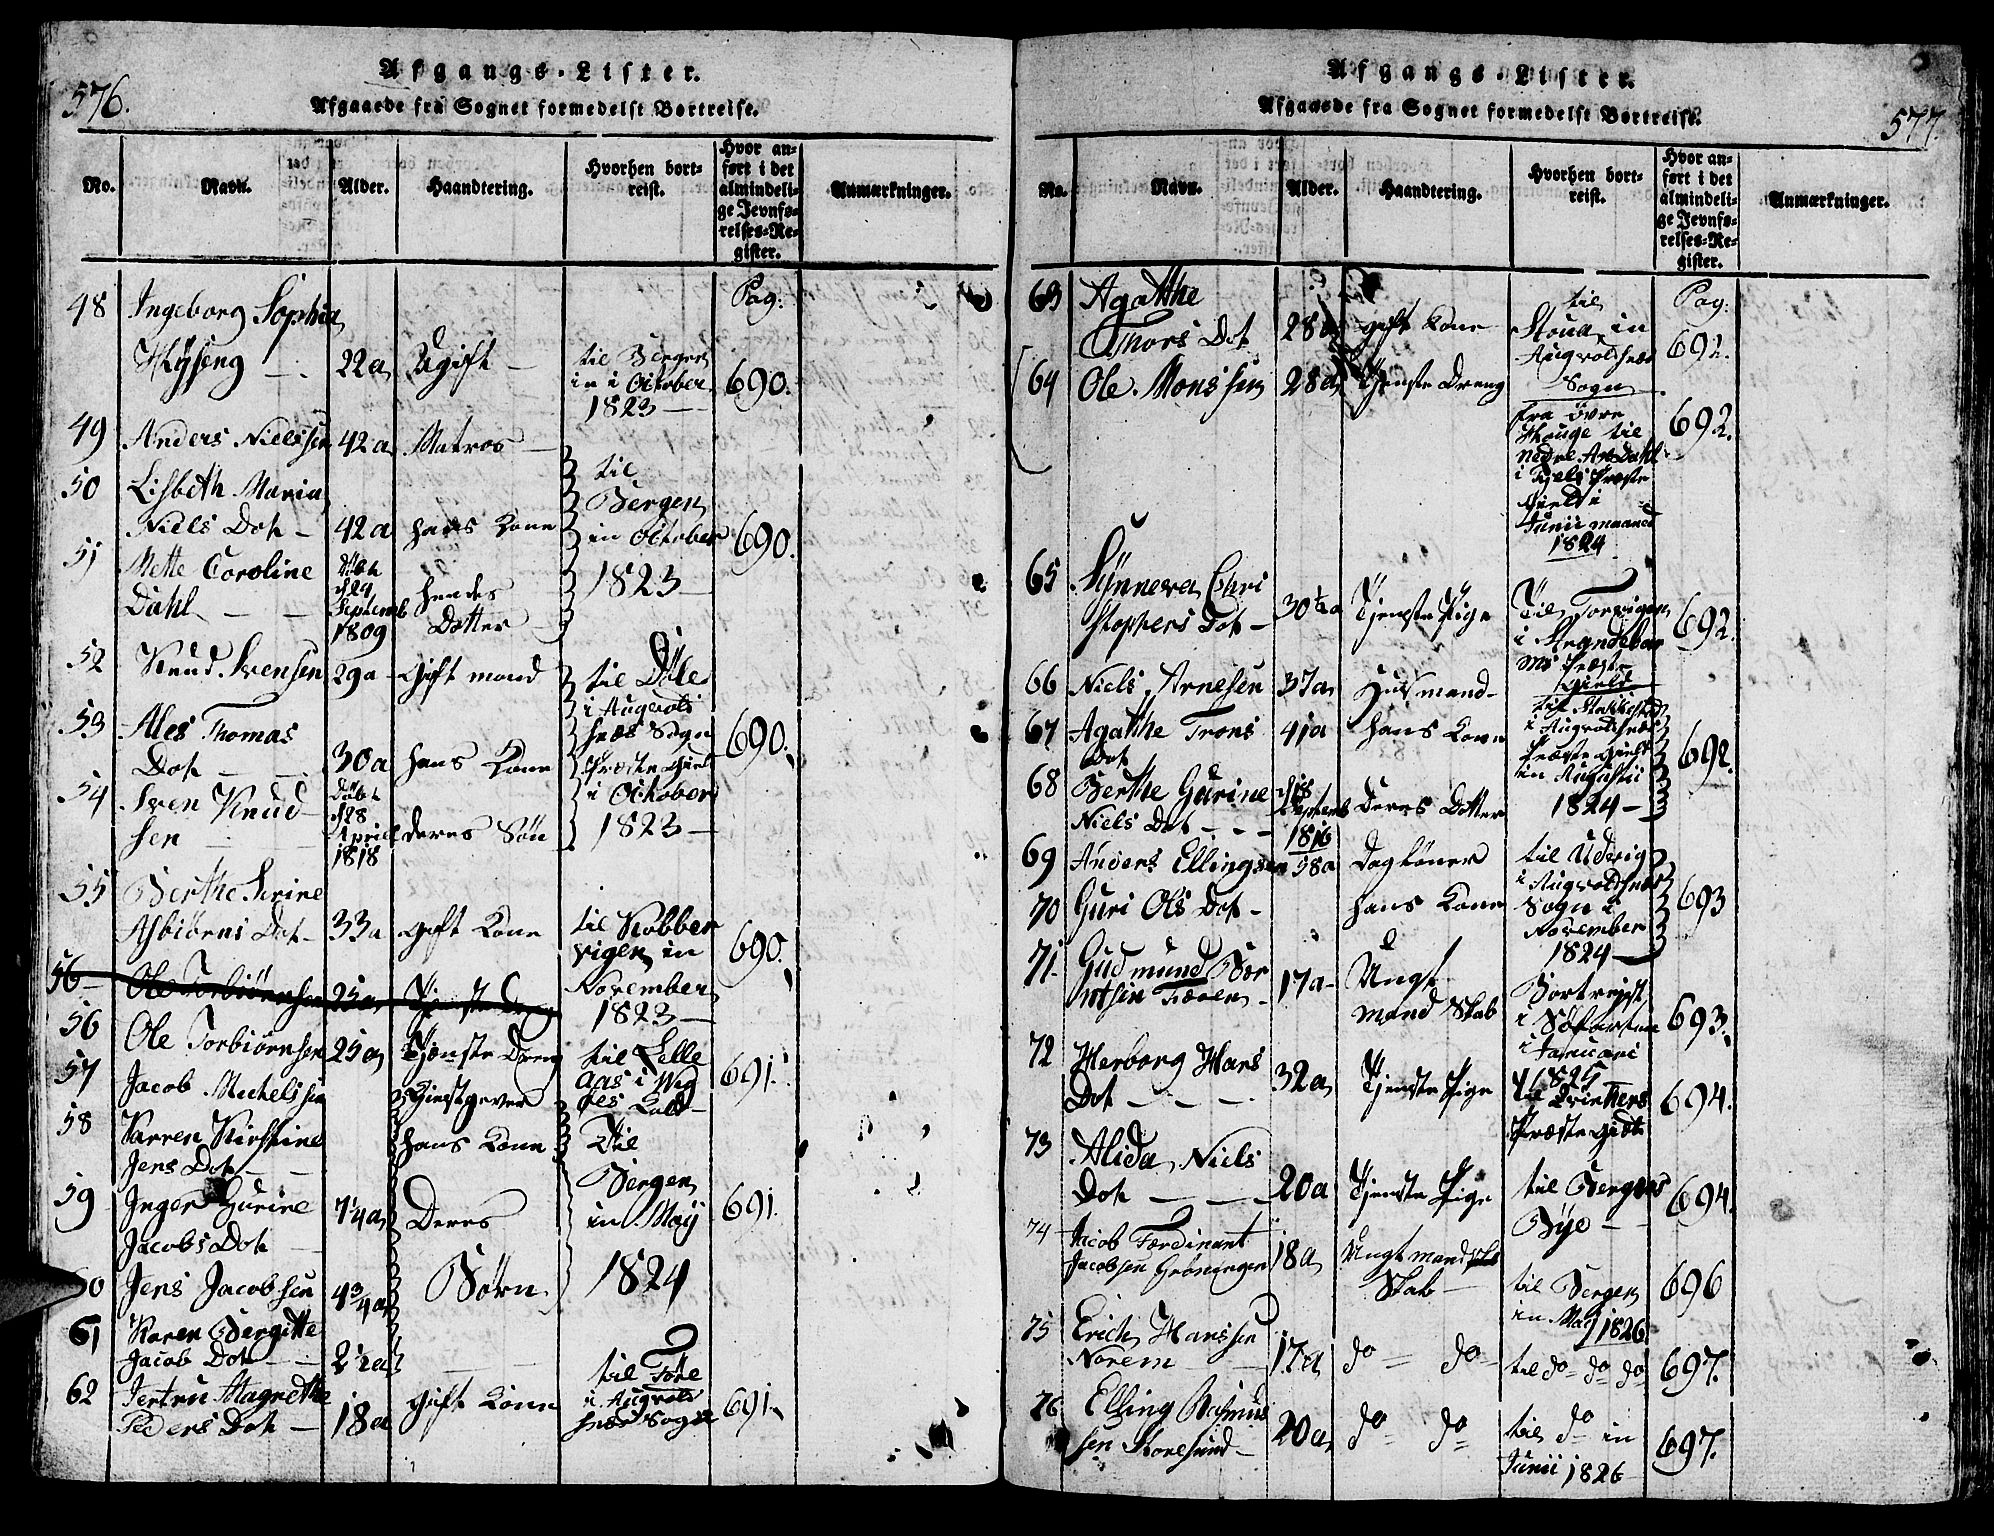 576.
Afgangs-Lister.
Afgaaede fra Sognet formedelst Bortreise.
No. Navn. Alder. Haandtering. Hvorhen bortreist. Hvor anført i det almindelige Jevnførelses-Register. Anmærkninger.
Pag:
48 Ingeborg Sophia
Hysing 22a Ugift til Bergen
in i October
1823 690.
49 Anders Nielssen 42a Matros
50 Lisbeth Maria
Niels Dot 42a hans Kone
til
Bergen
in October
1823 690.
51 Mette Caroline
Dahl
Døbt
d 29
Septemb
1809
hendes
Dotter
52 Knud Svensen 29a Gift mand
til
i Augvolds
næs Sogn
Præste Gield
i October
1823 690.
53 Ales Thomas
Dot 30a hans Kone
54 Sven Knud
sen
Døbt
d 28
April
1818
deres Søn
55 Berthe Serine
Asbiørns Dot 33a Gift Kone
til Kobber
vigen in
November
1823 690.
56 Ole Torbiørnsen 25a
56 Ole Torbiørnsen 25a Tjenste Dreng
til Lelle
aas i 691.
57 Jacob Michelssen Giestgever
58 Karren Kirstine
Jens Dot hans Kone
Til
Bergen
in Maij
1824 691.
59 Inger Gurine
Jacobs Dot 7¼a Deres
60 Jens Jacobsen 4¾a Børn
61 Karen Bergitte
Jacob Dot 2½a
62 Jertru Magrethe
Peders Dot 18a Gift Kone
til
i Augvolds
næs Sogn 691.
577.
Afgangs-Lister.
Afgaaede fra Sognet formedelst Bortreise.
No. Navn. Alder. Haandtering. Hvorhen bortreist. Hvor anført i det almindelige Jevnførelses-Register. Anmærkninger.
Pag:
63 Agatthe
Thors Dot 28a gift Kone
til
Stoua in
Augvoldsnæs
Sogn 692.
64 Ole Monssen 28a Tjenste Dreng
fra øvre
Houge til
nedre
i
Gield i
Junii maaned
1824 692.
65 Synneva Chri
stophers Dot 30½a Tjenste Pige
Til Torvigen
i Strandebar
ms Præste
Gield 692.
66 Niels Arnesen 37a Husmand
67 Agathe Trons
Dot 41a hans Kone
i Augvoldsnæs
Præste Gield
in Augustii
1824 692.
68 Berthe Gurine
Niels Dot
d 18
Septemb
1816
Deres Dotter
69 Anders Ellingsen 58a Dagløner
70 Guri Ols Dot hans Kone
til Udvig
i Augvoldsnæs
Sogn i
November
1824 693
71. Gudmund Bor
17a Ungt
mand Skab
Bortreyst
i Søfarten
i Januari
1825 693.
72 Herborg Hans
Dot 32a Tjenste Pige
til
Præste gield 694.
73 Alida Niels
Dot 20a Tjenste Pige til Bergens
Bye 694.
74 Jacob Færdinant
Jacobsen Grøningen 18a Ungt mand
Skab
til Bergen
in Maij 1826. 696
75 Erich Hanssen
Norem 17a do do til do do do 697.
76 Elling Rasmus
sen Storesund 20a do do til do in
Junii 1826 697.